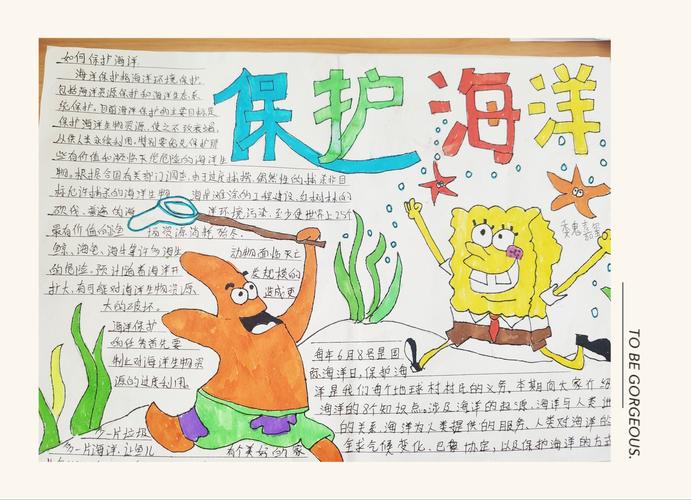 保护海洋
如何保护海洋
海洋保护指海洋环境保护,
包括海洋资源保护和海洋生态系
统保护。目前海洋保护的主要目标是
保护海洋生物资源,使之不致衰竭,
以供人类永续利用。特别要避免保护那
些有价值和濒临灭绝危险的海洋生
物。根据合国有关部门调查,由于过度捕捞、偶然性的捕杀非目
标允许捕杀的海洋生物、海岸滩涂的工程建设、红树林的
砍伐、普遍的海洋环境污染,至少使世界上25个
最有价值的渔场资源消耗殆尽,
鲸、海龟、海牛等许多海生动物面临灭亡
的危险。预计随着海洋开发规模的
扩大,有可能对海洋生物资源造成更
大的破坏。
海洋保护
的任务首先要
制止对海洋生物资
源的过度利用。
少一片垃圾
多一片海洋,让鱼儿有个美好的家
每年6月8号是国
际海洋日,保护海
洋是我们每个地球村村民的义务,本期向大家介绍
海洋的8个知识点,涉及海洋的起源、海洋与人类
的关系、海洋为人类提供的服务、人类对海洋的
全球气候变化、巴黎协定,以及保护海洋的方式
TO BE GORGEOUS.